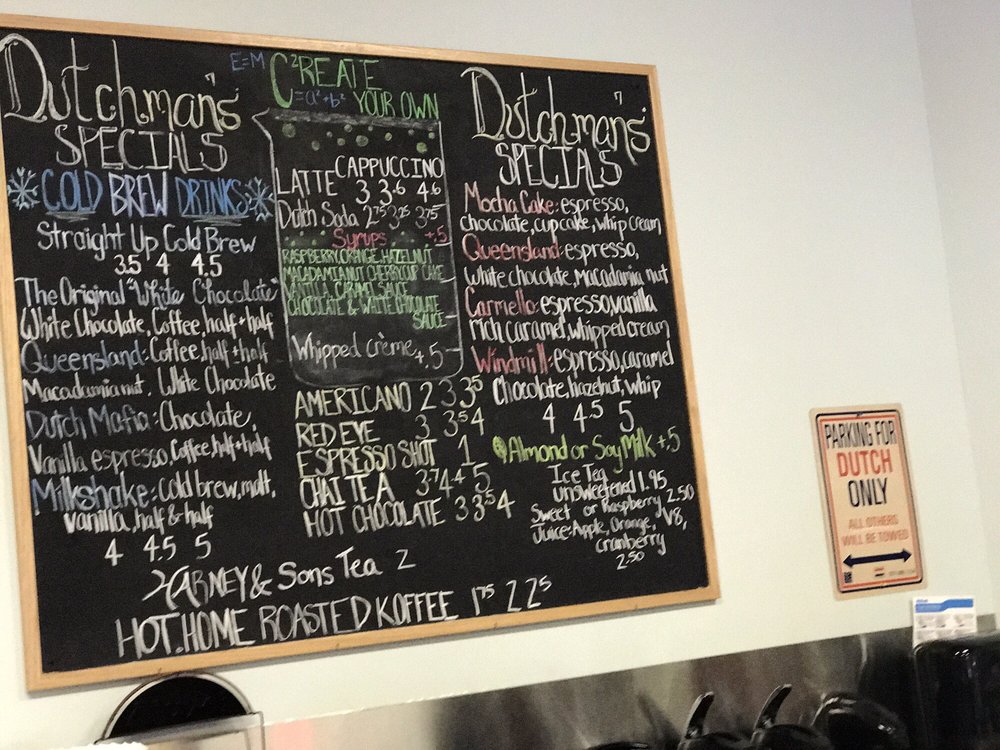 Dutchman's
SPECIALS
COLD BREW DRINKS
Straight Up Cold Brew
3.5 4 4.5
The Original "White Chocolate"
White Chocolate, Coffee, half + half
Queensland: Coffee, half + half
Macadamia nut, White Chocolate
Dutch Mafia: Chocolate,
Vanilla espresso, Coffee, half + half
Milkshake: Cold brew, malt,
vanilla, half & half
4 4.5 5
E=MC²REATE
=a²+b² YOUR OWN
CAPPUCCINO
LATTE 3 3.6 4.6
Dutch Soda 2.75 3.25 3.75
Syrups +.5
RASPBERRY, ORANGE, HAZELNUT
MACADAMIA NUT CHERRY, CUP CAKE
VANILLA, CARAMEL SAUCE
CHOCOLATE & WHITE CHOCOLATE
SAUCE
Whipped crème +.5
AMERICANO 2 3 3.5
RED EYE 3 3.5 4
ESPRESSO SHOT 1
CHAI TEA 3.7 4.4 5
HOT CHOCOLATE 3 3.5 4
Dutchman's
SPECIALS
Mocha Cake: espresso,
chocolate, cupcake, whip cream
Queensland: espresso,
White chocolate, Macadamia nut
Carmello: espresso, vanilla
rich caramel, whipped cream
Windmill: espresso, caramel
Chocolate, hazelnut, whip
4 4.5 5
Almond or Soy Milk +.5
Ice Tea
unsweetened 1.95
Sweet or Raspberry 2.50
Juice: Apple, Orange, V8,
cranberry
2.50
HARNEY & Sons Tea 2
HOT. HOME ROASTED KOFFEE 1.75 2 2.25
PARKING FOR
DUTCH
ONLY
ALL OTHERS
WILL BE TOWED